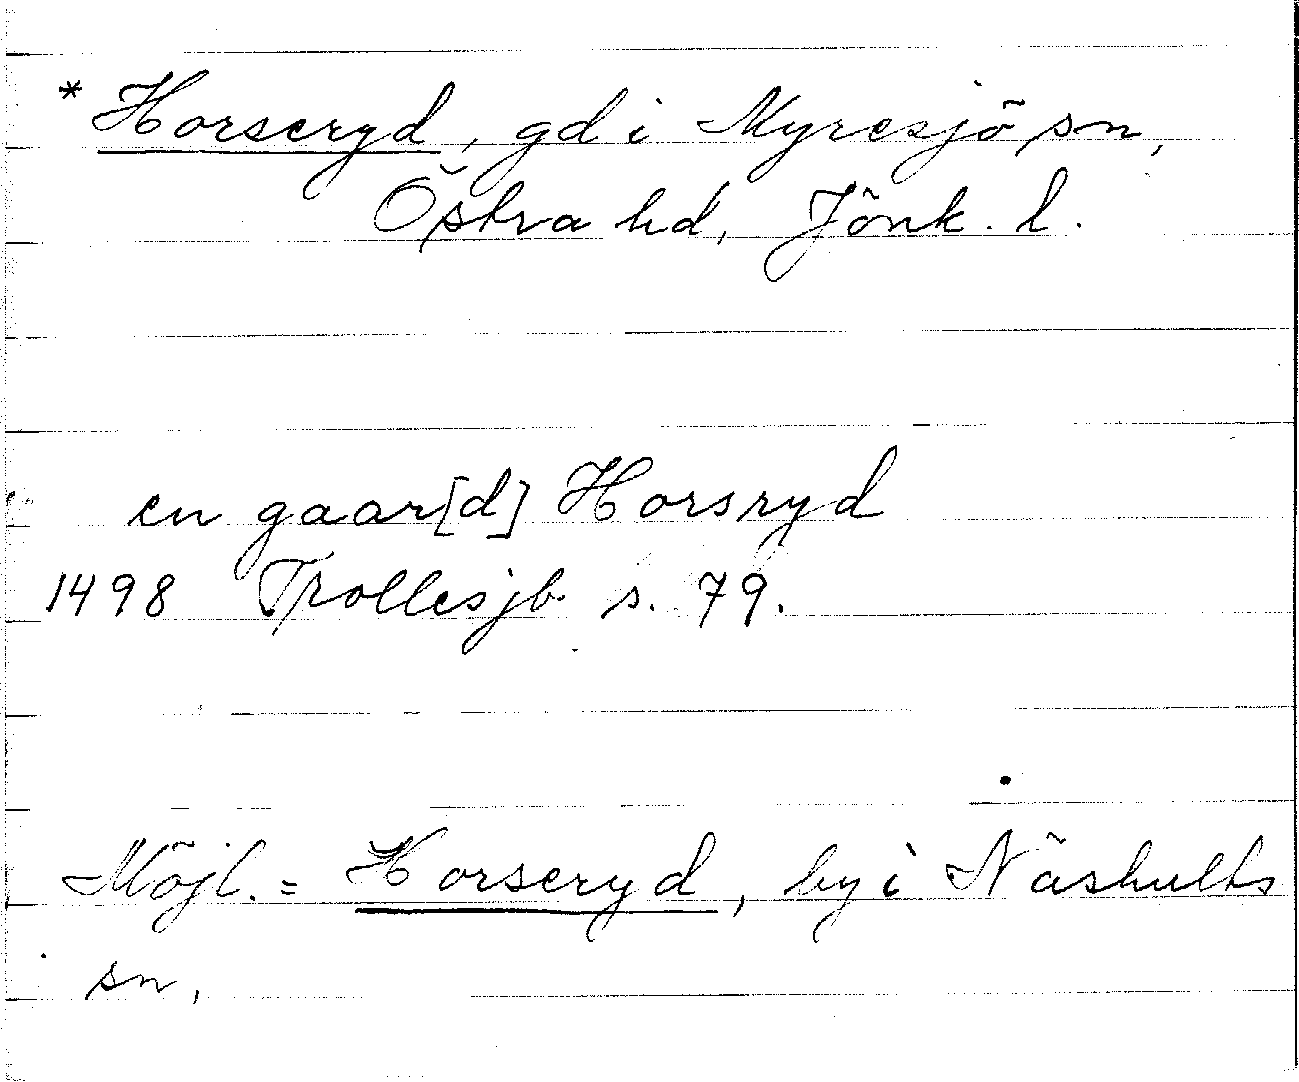 * Horseryd, gd i Myresjö sn,
Östra hd, Jönk. l.
en gaar[d] Horsryd
1498 Trollesjb s. 79.
Möjl. = Horseryd, by i Näshults
sn,